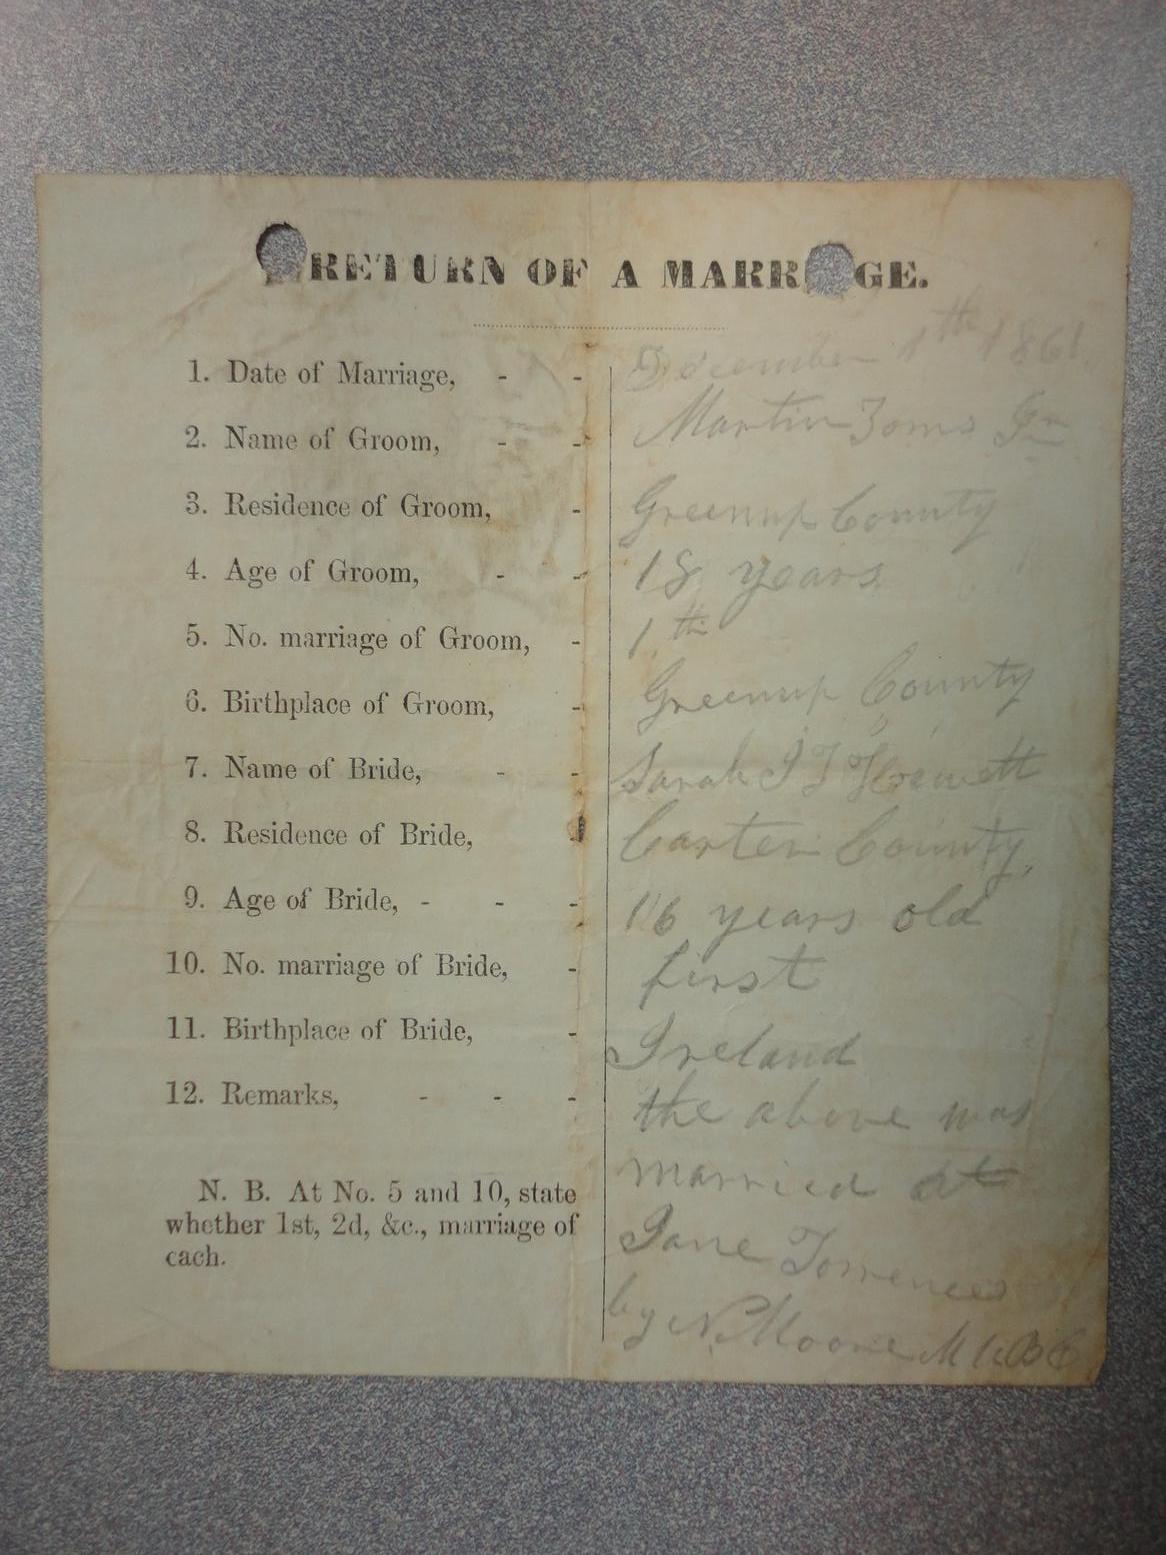 RETURN OF A MARR GE.
1. Date of Marriage, - - December 1th 1861
2. Name of Groom, - - Martin Toms Jr
3. Residence of Groom, - Greenup County
4. Age of Groom, - - 18 years
5. No. marriage of Groom, - 1th
6. Birthplace of Groom, - Greenup County
7. Name of Bride, - - Sarah J T
8. Residence of Bride, - Carter County,
9. Age of Bride, - - - 16 years old
10. No. marriage of Bride, - first
11. Birthplace of Bride, - Ireland
12. Remarks, - - - the above was
married at
Jane
by N. Moore M
N. B. At No. 5 and 10, state
whether 1st, 2d, &c., marriage of
each.